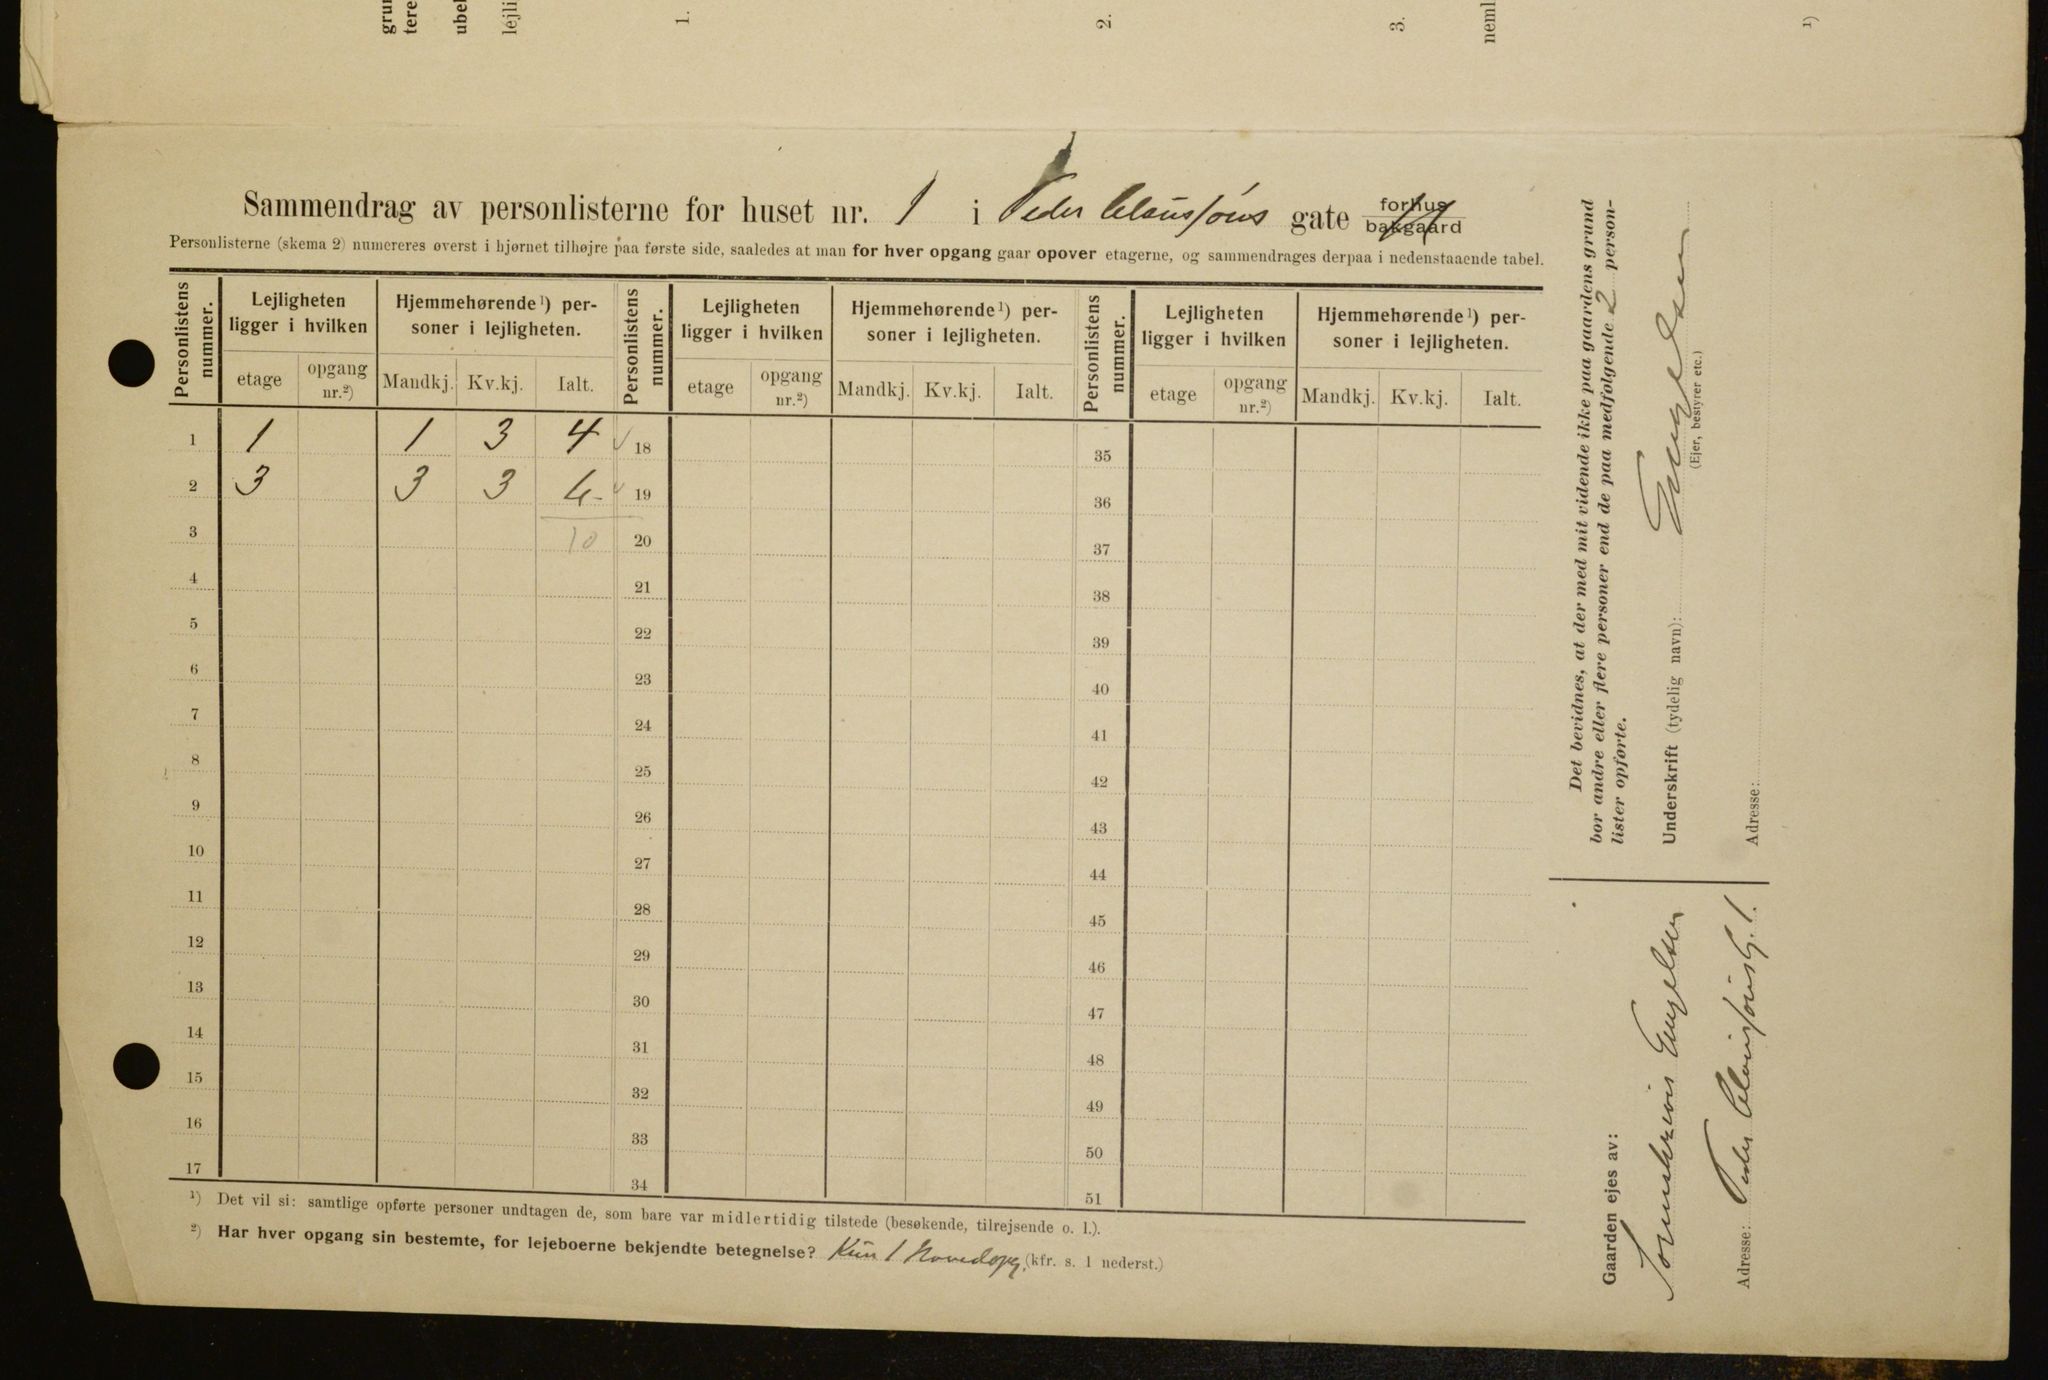 grun
tere
ubel
lejli
1.
2.
3.
neml
1)
Sammendrag av personlisterne for huset nr. 1 i Peder Claussøns gate forhus bakgaard
Personlisterne (skema 2) numereres øverst i hjørnet tilhøjre paa første side, saaledes at man for hver opgang gaar opover etagerne, og sammendrages derpaa i nedenstaaende tabel.
Personlistens nummer. Lejligheten ligger i hvilken Hjemmehørende 1) personer i lejligheten. Personlistens nummer. Lejligheten ligger i hvilken Hjemmehørende 1) personer i lejligheten. Personlistens nummer. Lejligheten ligger i hvilken Hjemmehørende 1) personer i lejligheten.
etage opgang nr. 2) Mandkj. Kv.kj. Ialt. etage opgang nr. 2) Mandkj. Kv.kj. Ialt. etage opgang nr. 2) Mandkj. Kv.kj. Ialt.
1 1 1 3 4 18 35
2 3 3 3 6 19 36
3 10 20 37
4 21 38
5 22 39
6 23 40
7 24 41
8 25 42
9 26 43
10 27 44
11 28 45
12 29 46
13 30 47
14 31 48
15 32 49
16 33 50
17 34 51
1) Det vil si: samtlige opførte personer undtagen de, som bare var midlertidig tilstede (besøkende, tilrejsende o. l.).
2) Har hver opgang sin bestemte, for lejeboerne bekjendte betegnelse? Kun 1 Hovedopg. (kfr. s. 1 nederst.)
Det bevidnes, at der med mit vidende ikke paa gaardens grund
bor andre eller flere personer end de paa medfølgende 2 person-
lister opførte.
Underskrift (tydelig navn): Engelsen
(Ejer, bestyrer etc.)
Adresse:
Gaarden ejes av:
Engelsen
Adresse: Peder Claussønsg. 1.